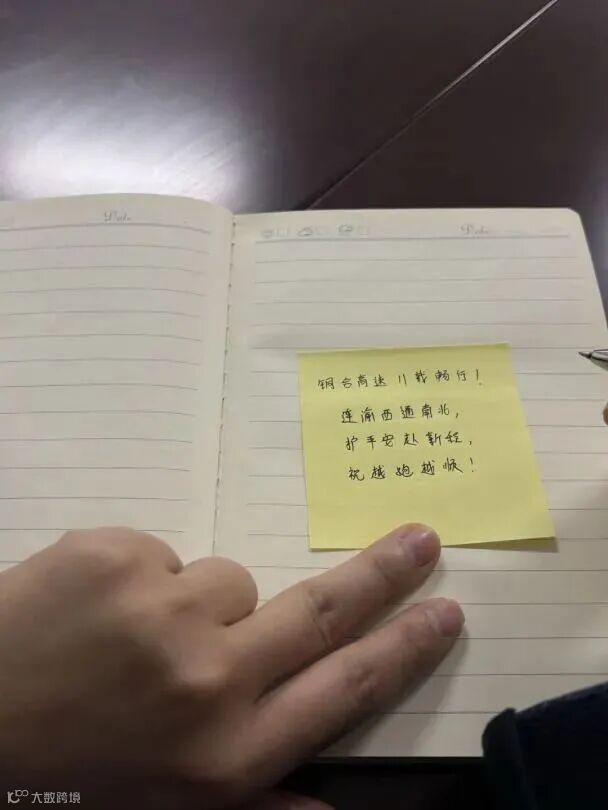 Date
Date
铜合高速11载畅行!
连渝西通南北,
护平安赴新程,
祝越跑越顺!
大数跨境